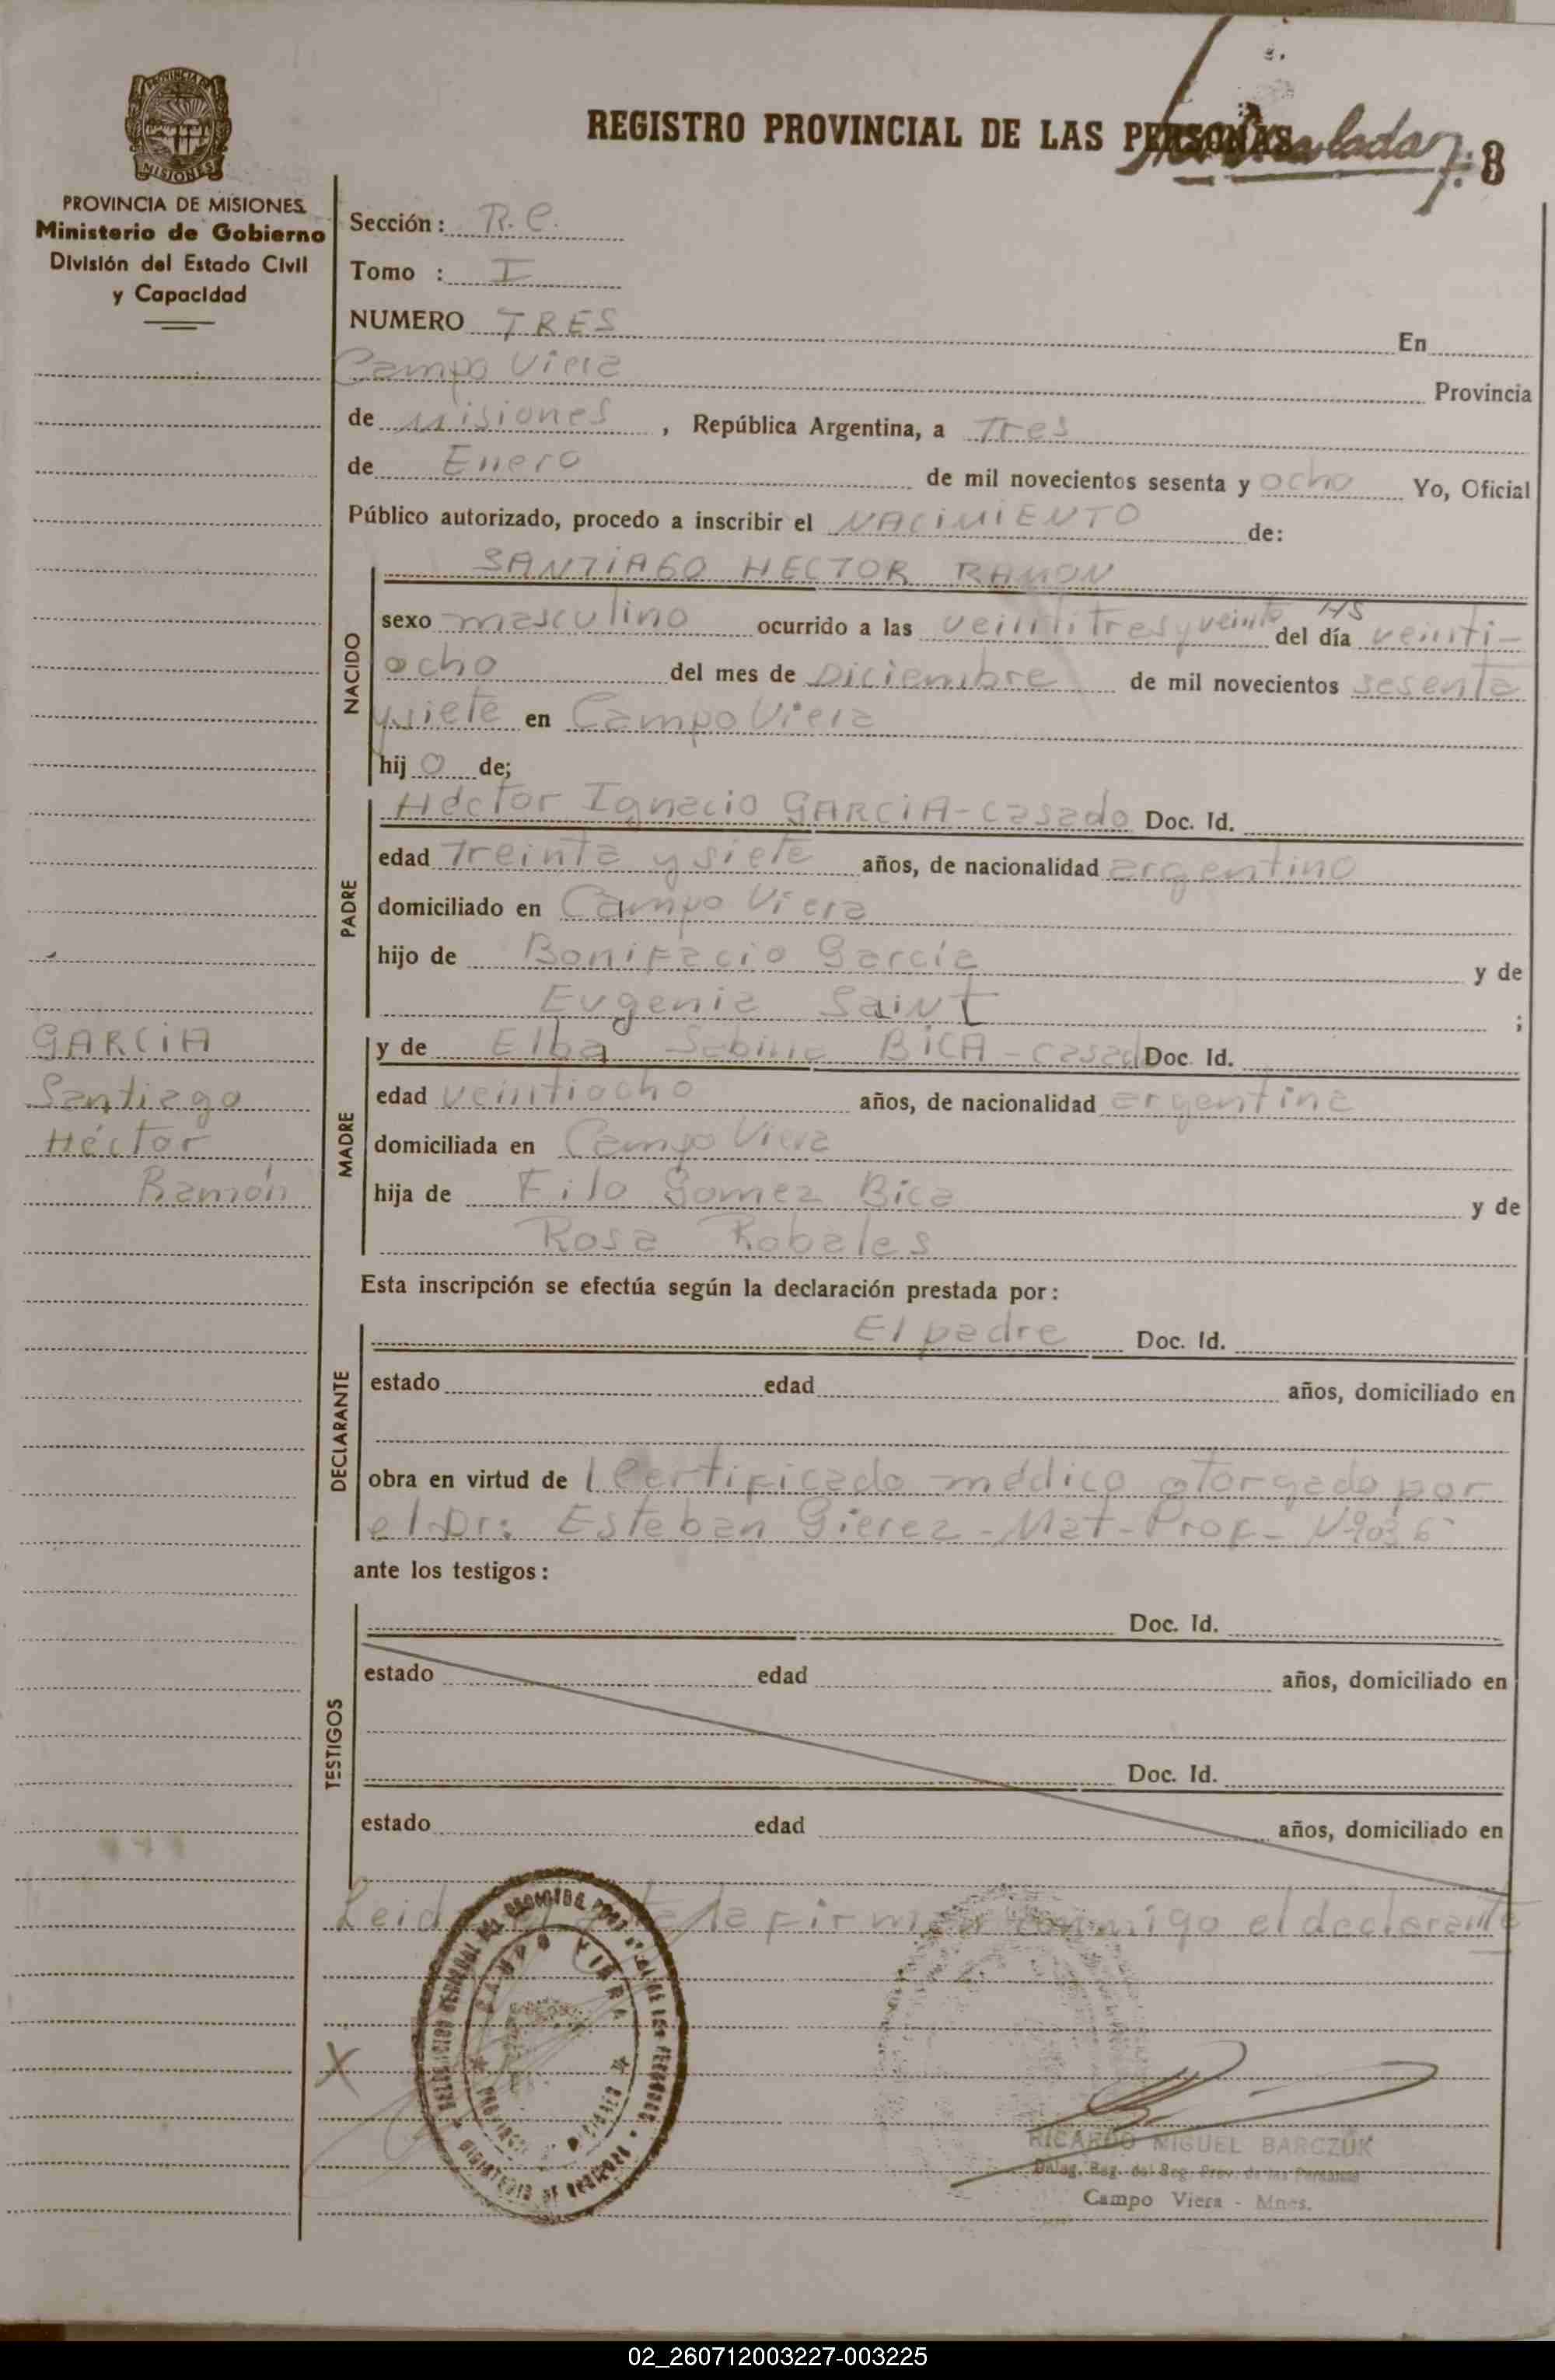 REGISTRO PROVINCIAL DE LAS PERSONAS
8
PROVINCIA DE MISIONES
Ministerio de Gobierno
División del Estado Civil
y Capacidad
Sección: R.C.
Tomo : I
NUMERO TRES En
Campo Viera Provincia
de Misiones, República Argentina, a Tres
de Enero de mil novecientos sesenta y ocho Yo, Oficial
Público autorizado, procedo a inscribir el NACIMIENTO de:
NACIDO
SANTIAGO HECTOR RAMON
sexo masculino ocurrido a las veintitres y veinte HS del día veinti-
ocho del mes de Diciembre de mil novecientos sesenta
y siete en Campo Viera
hijo de;
PADRE
Héctor Ignacio GARCIA - casado Doc. Id.
edad Treinta y siete años, de nacionalidad argentino
domiciliado en Campo Viera
hijo de Bonifacio García y de
Eugenia Saint ;
MADRE
y de Elba Sabina BICA - casada Doc. Id.
edad veintiocho años, de nacionalidad argentina
domiciliada en Campo Viera
hija de Filo Gomez Bica y de
Rosa Robales
GARCIA
Santiago
Héctor
Ramón
Esta inscripción se efectúa según la declaración prestada por:
DECLARANTE
El padre Doc. Id.
estado edad años, domiciliado en
obra en virtud de 1 Certificado médico otorgado por
el Dr: Esteban Gierez - Mat - Prof - Nº
ante los testigos:
TESTIGOS
Doc. Id.
estado edad años, domiciliado en
Doc. Id.
estado edad años, domiciliado en
firman conmigo el declarante
X
CAMPO VIERA
RICARDO MIGUEL BARCZUK
Deleg. Reg. del Reg. Prov. de las Personas
Campo Viera - Mnes.
02_260712003227-003225